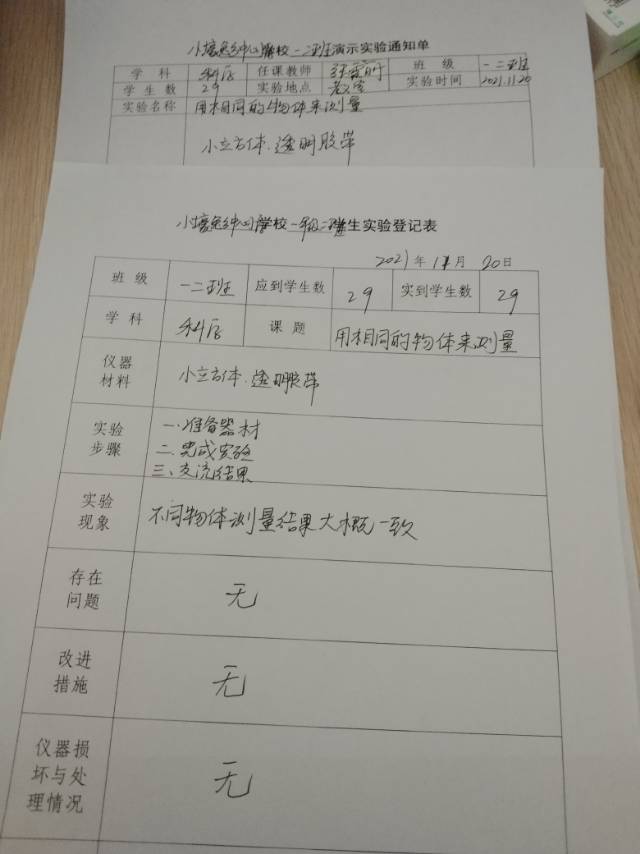 学校一二班演示实验通知单
学科 科学 任课教师 班级 一二班
学生数 29 实验地点 教室 实验时间 2021.11.20
实验名称 用相同的物体来测量
小立方体.透明胶带
学校一年级二班学生实验登记表
2021年11月20日
班级 一二班 应到学生数 29 实到学生数 29
学科 科学 课题 用相同的物体来测量
仪器
材料
小立方体.透明胶带
实验
步骤
一.准备器材
二.完成实验
三.交流结果
实验
现象
不同物体测量结果大概一致
存在
问题
无
改进
措施
无
仪器损
坏与处
理情况
无